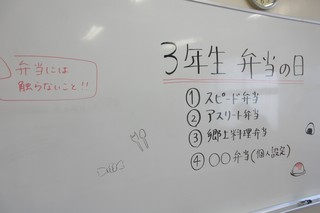 弁当には
触らないこと!!
3年生 弁当の日
① スピード弁当
② アスリート弁当
③ 郷土料理弁当
④ ○○弁当(個人設定)